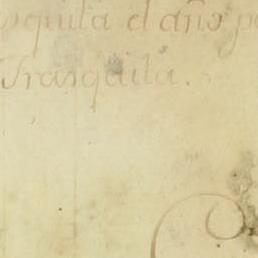 squita d año p
Trasquila.